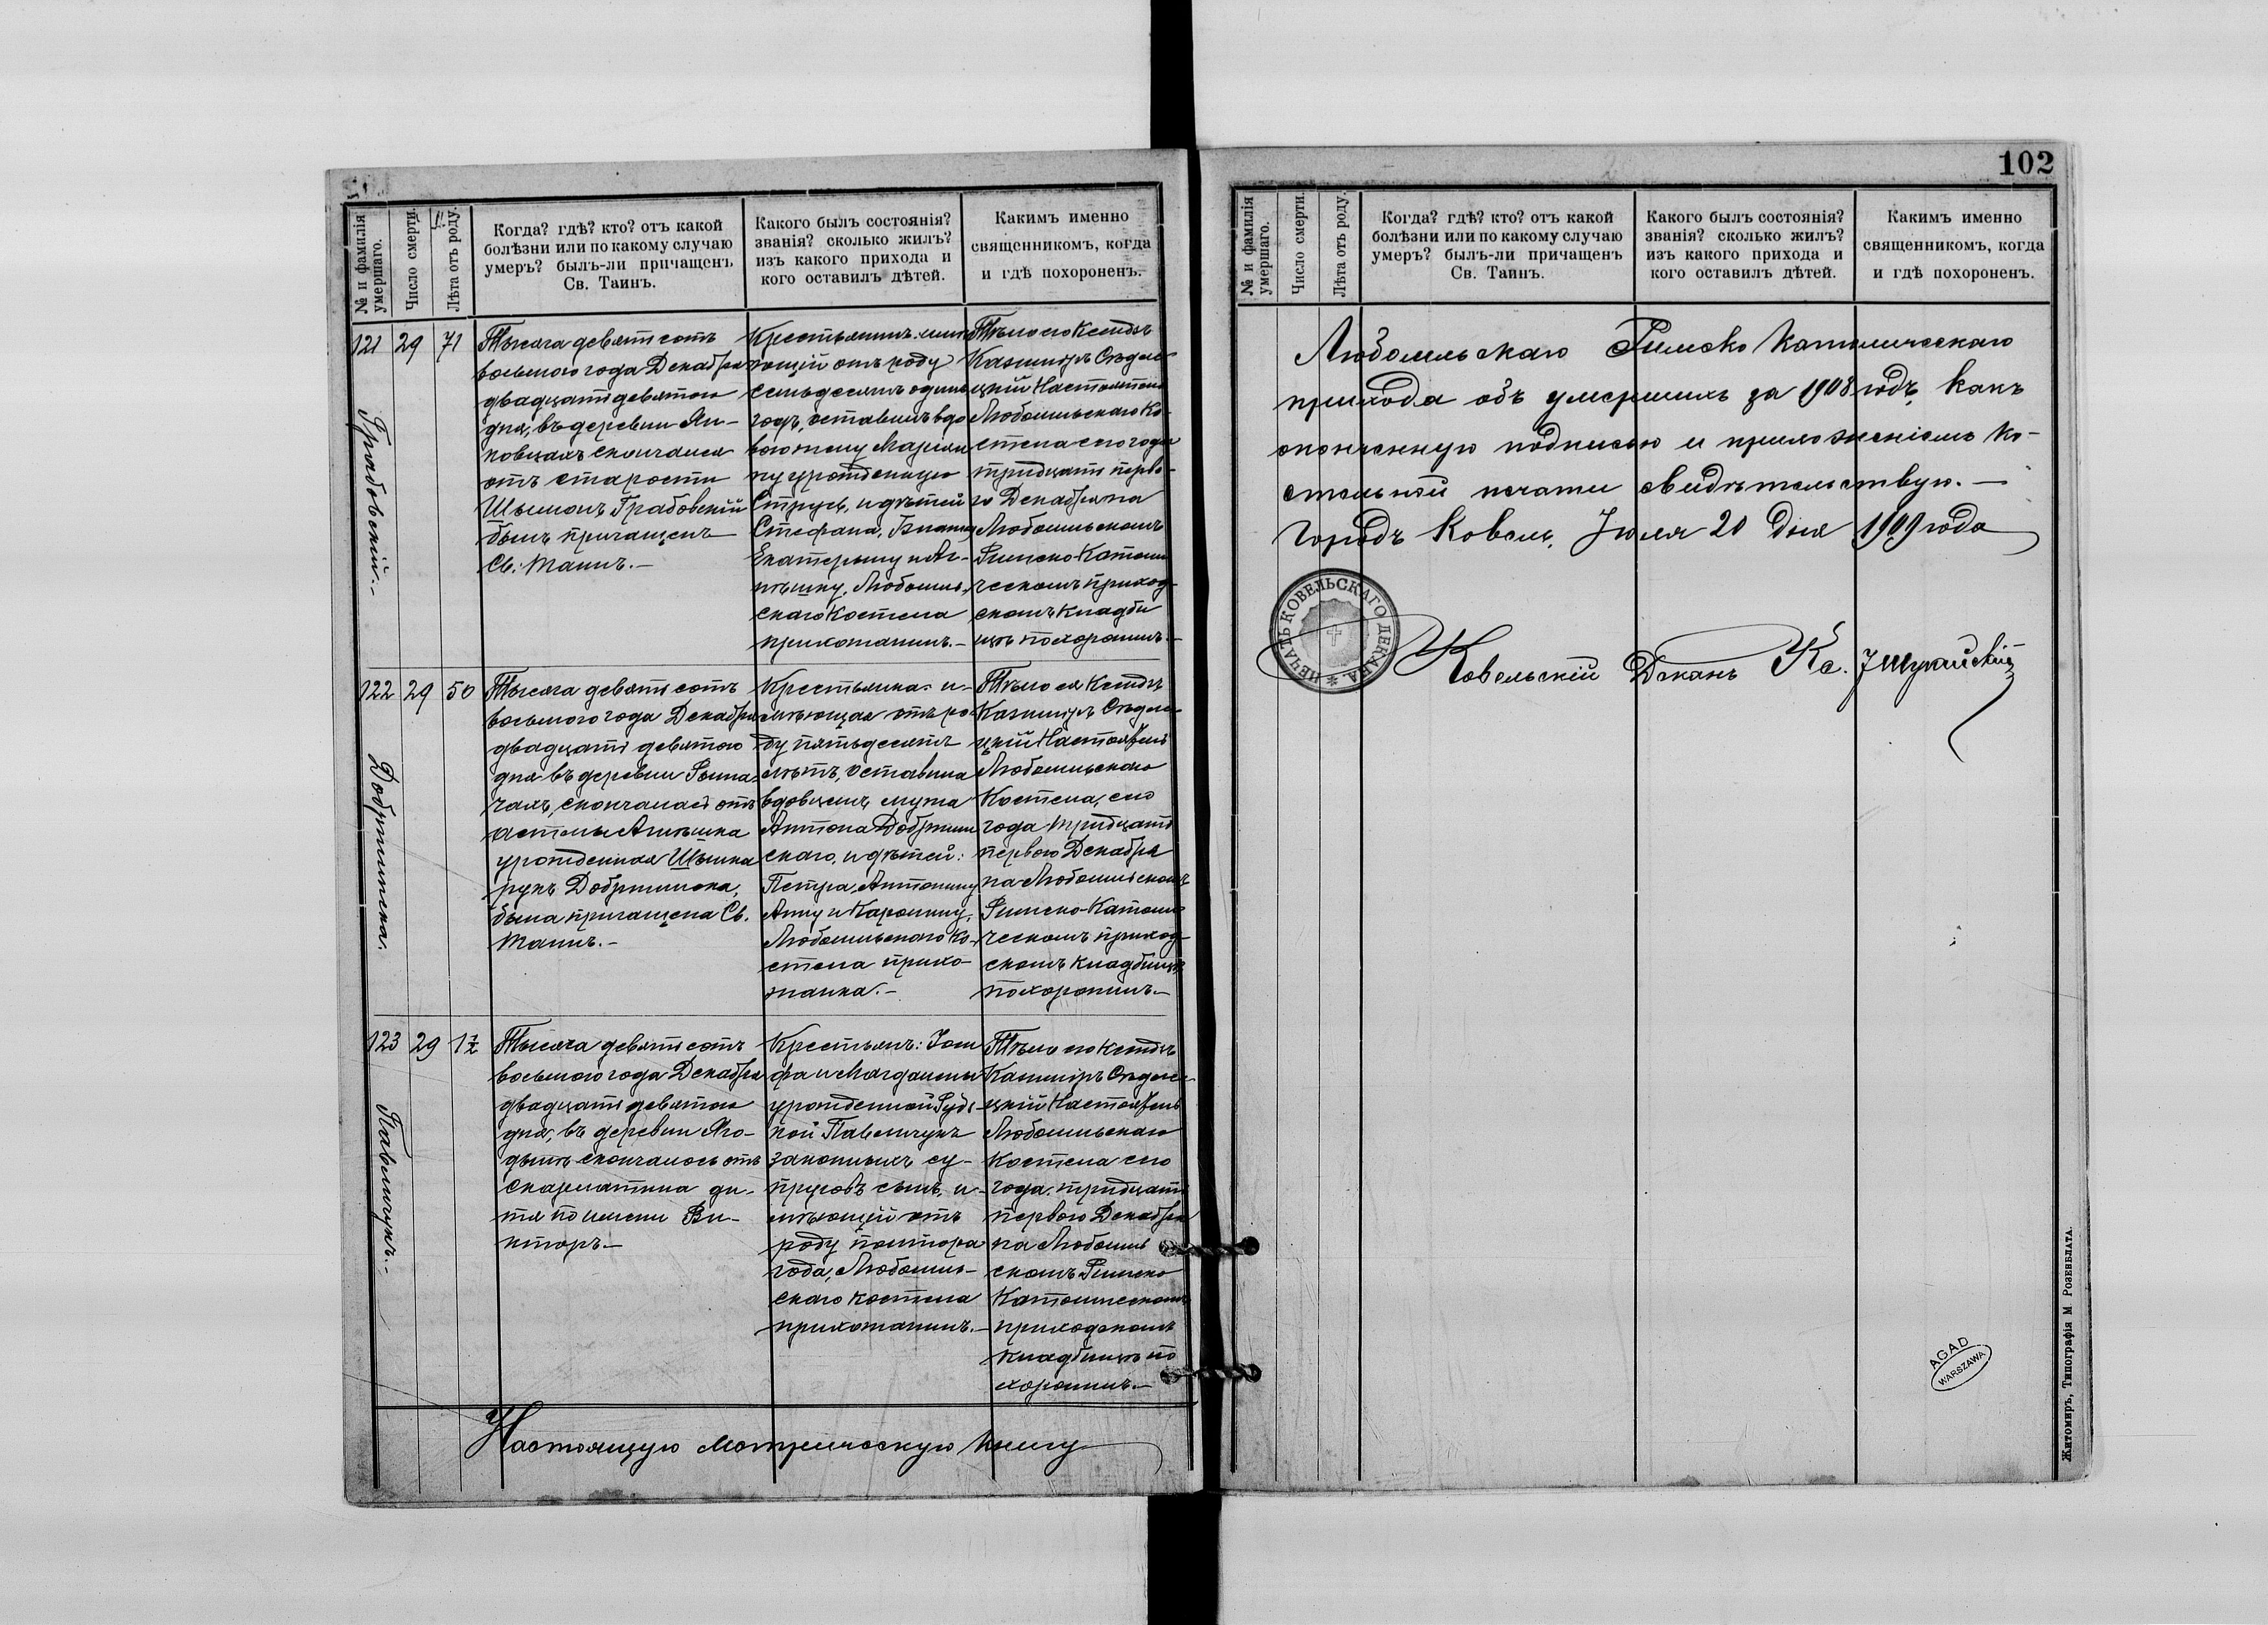 № и фамилія умершаго.
Число смерти.
Лѣта отъ роду.
Когда? гдѣ? кто? отъ какой
болѣзни или по какому случаю
умеръ? былъ-ли причащенъ
Св. Таинъ.
Какого былъ состоянія?
званія? сколько жилъ?
изъ какого прихода и
кого оставилъ дѣтей.
Какимъ именно
священникомъ, когда
и гдѣ похороненъ.
121
29
71
Грабовскій.-
Тысяча девятьсотъ
восьмого года Декабря
двадцать девятого
дня, въ деревни Ян-
ковцахъ скончался
отъ старости
Шымонъ Грабовскій
былъ причащенъ
Св. Таинъ.-
Крестьянинъ имѣ
ющій отъ роду
семьдесятъ одинъ
годъ, оставилъ вдо
вою жену Маріян
ну урожденную
Струсь, и дѣтей
Стефана,
Екатерыну и Аг-
нѣшку, Любомль-
скаго Костела
прихожанинъ.-
Тѣло его Ксендзъ
Казиміръ Сѣдле-
цкій Настоятель
Любомльскаго Ко-
стела сего года
тридцать перво-
го Декабря на
Любомльскомъ
Римско-Католи
ческомъ приход-
скомъ кладби
щѣ похоронилъ.-
122
29
50
Добржинска.
Тысяча девятьсотъ
восьмого года Декабря
двадцать девятого
дня въ деревни Рыма-
чахъ, скончалась отъ
астмы Агнѣшка
урожденная Шыма
рукъ Добржинска,
была причащена Св.
Таинъ.-
Крестьянка и-
мѣющая отъ ро-
ду пятьдесятъ
лѣтъ, оставила
вдовцемъ мужа
Антона Добржин
скаго, и дѣтей:
Петра, Антонину
Анну и Каролину,
Любомльскаго Ко-
стела прихо-
жанка.-
Тѣло ея Ксендзъ
Казиміръ Сѣдле-
цкій Настоятель
Любомльскаго
Костела, сего
года тридцать
первого Декабря
на Любомльскомъ
Римско-Католи
ческомъ приход-
скомъ кладбищѣ
похоронилъ.-
123
29
1½
Павльчукъ.-
Тысяча девятьсотъ
восьмого года Декабря
двадцать девятого
дня, въ деревни Яго-
дынѣ скончалось отъ
скарлатина ди-
тя по имени Ви-
кторъ-
Крестьянъ: Іоси
фа и Магдалены
урожденной Рудь-
кой Павльчукъ
законныхъ су-
пруговъ сынъ, и-
мѣющій отъ
роду полтора
года, Любомль-
скаго костела
прихожанинъ.-
Тѣло его Ксендзъ
Казиміръ Сѣдле-
цкій Настоятель
Любомльскаго
Костела сего
года тридцать
первого Декабря
на Любомль
скомъ Римско
Католическомъ
приходскомъ
кладбищѣ по
хоронилъ.-
Настоящую метрическую книгу
102
№ и фамилія умершаго.
Число смерти.
Лѣта отъ роду.
Когда? гдѣ? кто? отъ какой
болѣзни или по какому случаю
умеръ? былъ-ли причащенъ
Св. Таинъ.
Какого былъ состоянія?
званія? сколько жилъ?
изъ какого прихода и
кого оставилъ дѣтей.
Какимъ именно
священникомъ, когда
и гдѣ похороненъ.
Любомльскаго Римско Католическаго
прихода объ умершихъ за 1908 годъ, какъ
оконченную подписью и приложеніемъ ко-
стельной печати свидѣтельствую.-
Городъ Ковель, Іюля 20 дня 1909 года
ПЕЧАТЬ КОВЕЛЬСКАГО ДЕКАНА
Ковельскій Деканъ Кс.
AGAD
WARSZAWA
Житомиръ, Типографія М РОЗЕНБЛАТА.